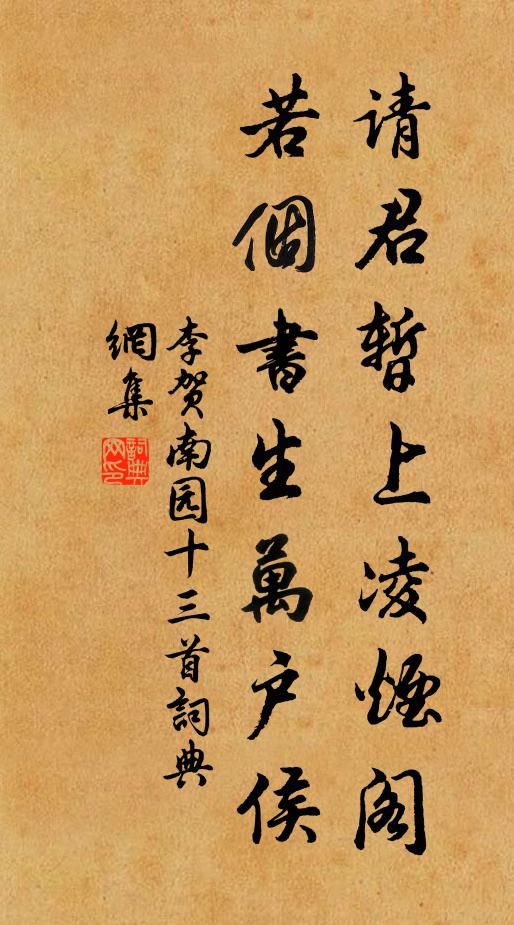 请君暫上凌煙阁
若個書生萬户侯
李贺南园十三首詞典
網集
詞典
网印